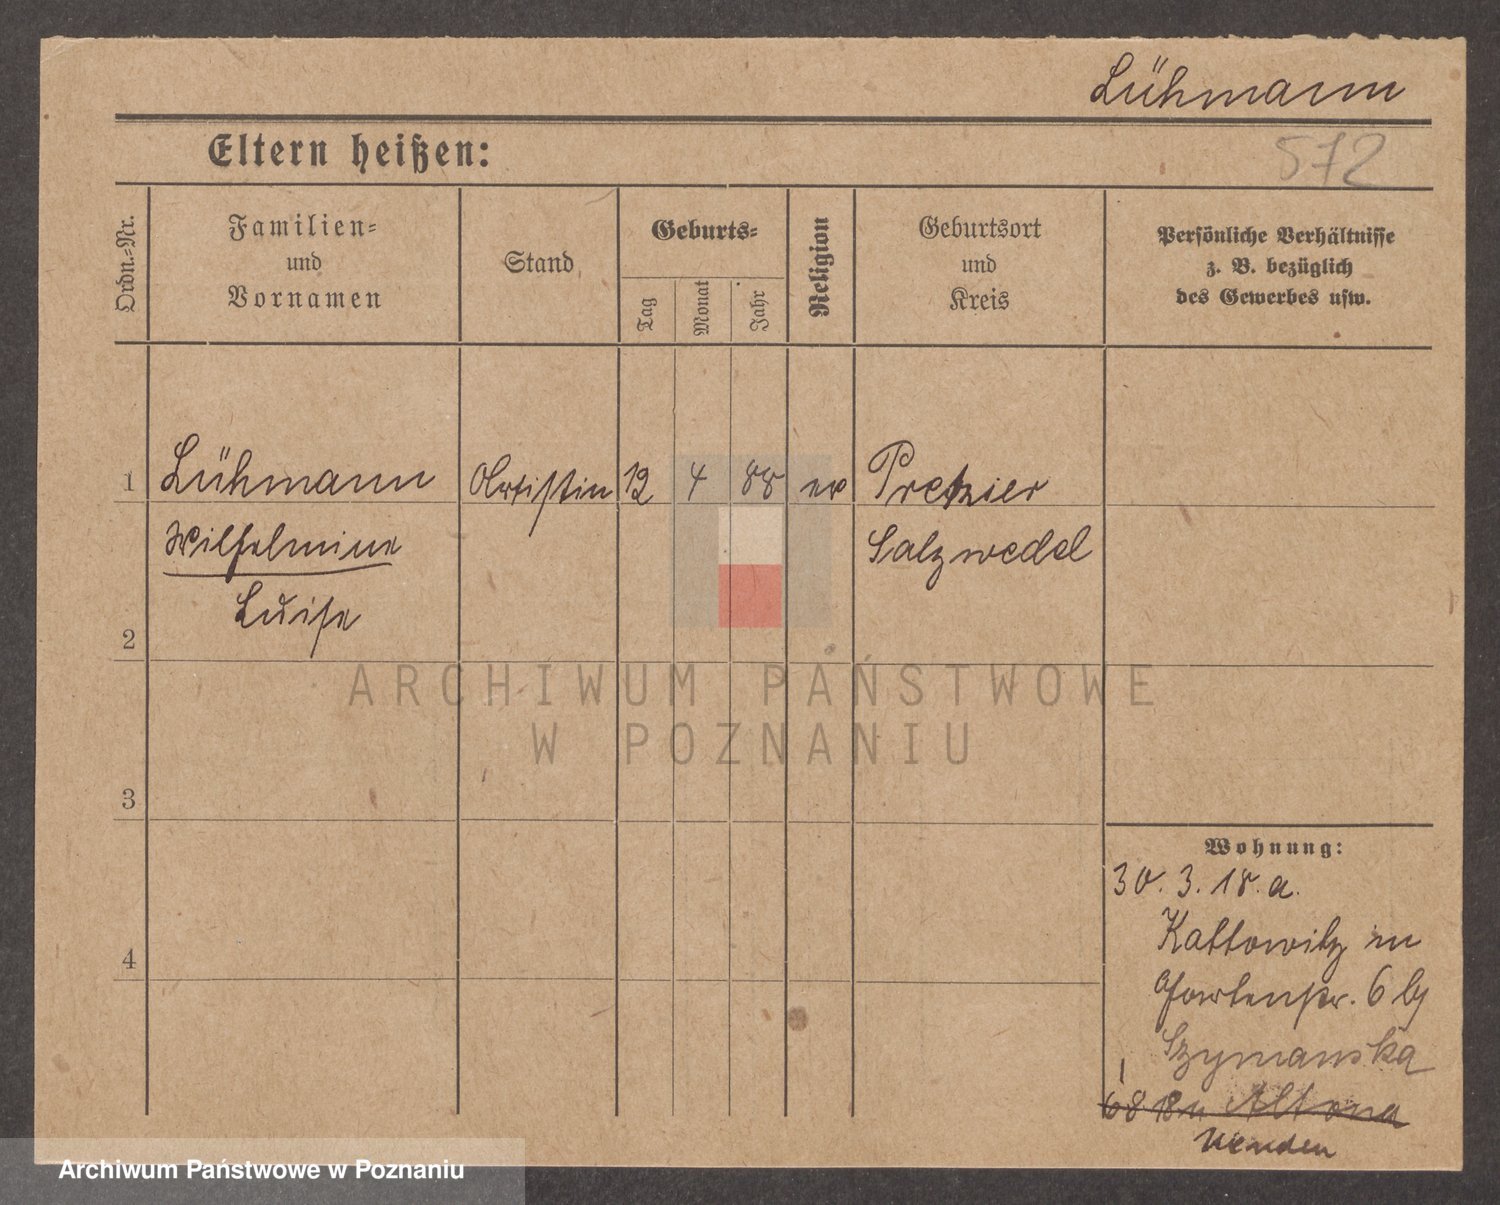 Lühmann
572
Eltern heißen:
Ordn.-Nr.
Familien-
und
Vornamen
Stand
Geburts-
Tag
Monat
Jahr
Religion
Geburtsort
und
Kreis
Persönliche Verhältnisse
z. B. bezüglich
des Gewerbes usw.
1 Lühmann Artistin 12 4 88 ev Pretzier
Wilhelmine Salzwedel
Luise
2
3
4
ARCHIWUM PAŃSTWOWE
W POZNANIU
Wohnung:
30. 3. 18. a.
Kattowitz
Gartenstr. 6 b/
Szymanska
Altona
Wenden
Archiwum Państwowe w Poznaniu